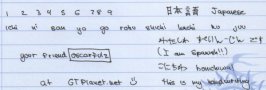 1 2 3 4 5 6 7 8 9 日本言語 Japanese
ichi ni san yo go roku shichi hachi ku juu
わたしわ すぺいん-じん です
your friend oscarfdz (I am Spanish!!)
こにちわ
at GTPlanet.net ☺ this is my handwriting